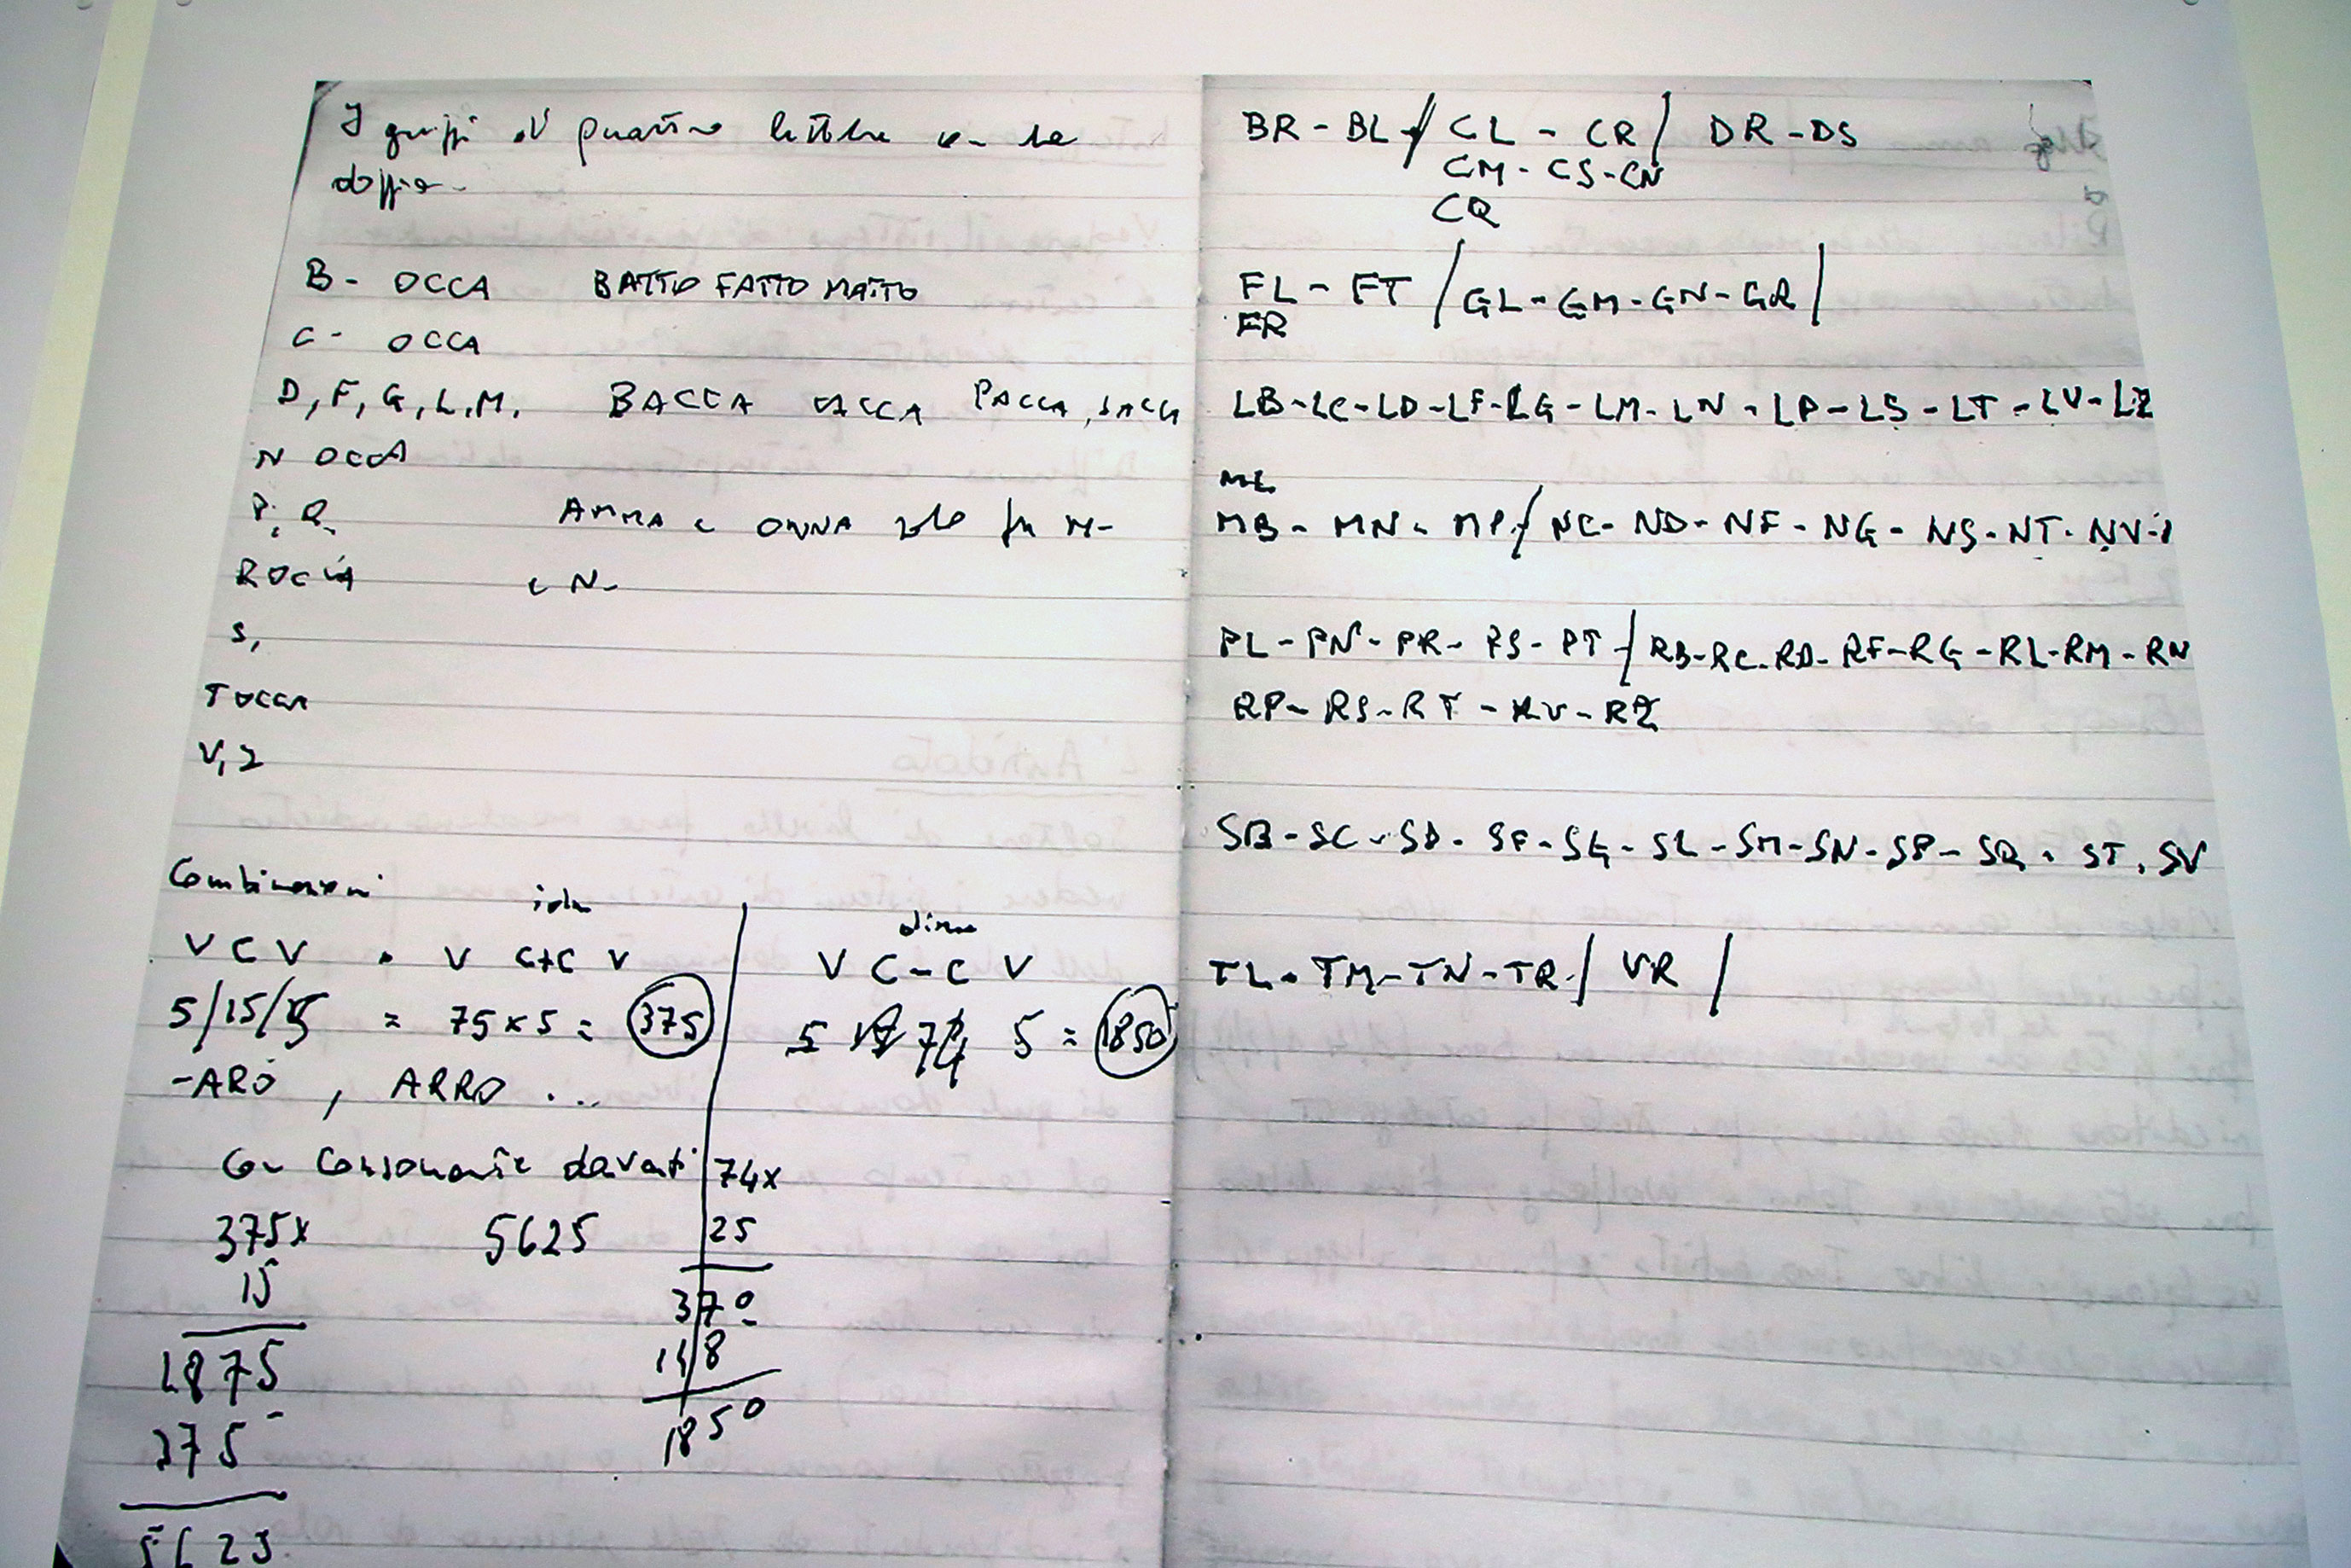 I gruppi di quattro lettere con la
doppia -
B - OCCA BATTO FATTO MATTO
C - OCCA
D, F, G, L, M. BACCA VACCA PACCA, SACCA
N OCCA
P, Q AMMA e ONNA solo fra M-
ROCCA e N-
S,
TOCCA
V, Z
Combinazioni
VCV . V C+C V
5/15/5 = 75x5 = 375
-ARO, ARRO ...
V C-C V
5 74 5 = 1850
Con Consonante davanti
375x 5625
15
1875
375-
5625
74x
25
370
148
1850
BR - BL / CL - CR / DR - DS
CM - CS - CN
CQ
FL - FT / GL - GM - GN - GR /
FR
LB - LC - LD - LF - LG - LM - LN - LP - LS - LT - LV - LZ
ML
MB - MN - MP / NC - ND - NF - NG - NS - NT - NV -
PL - PN - PR - PS - PT / RB - RC - RD - RF - RG - RL - RM - RN
RP - RS - RT - RV - RZ
SB - SC - SD - SF - SG - SL - SM - SN - SP - SQ - ST, SV
TL - TM - TN - TR / VR /